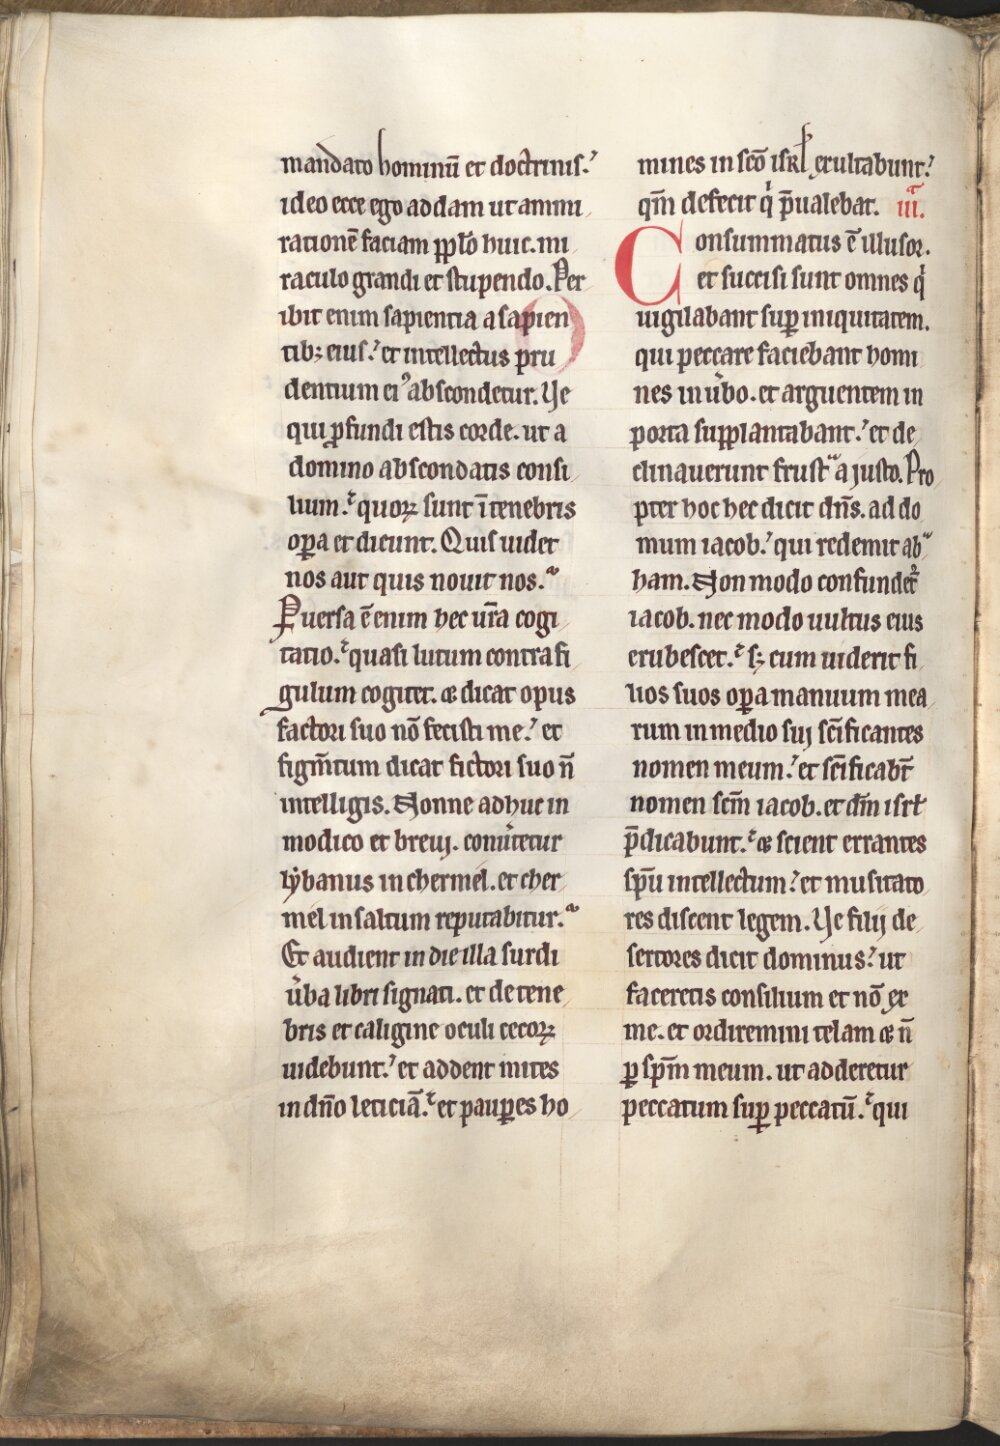 mandato hominū et doctrinis.
ideo ecce ego addam ut ammi
rationē faciam pplo huic. mi
raculo grandi et stupendo. Per
ibit enim sapientia a sapien
tib; eius. et intellectus pru
dentium ei abscondetur. Ve
qui pfundi estis corde. ut a
domino abscondatis consi
lium. quoꝝ sunt ī tenebris
opa et dicunt. Quis uidet
nos aut quis nouit nos.
Puersa ē enim hec ur̄a cogi
tatio. quasi lutum contra fi
gulum cogitet. & dicat opus
factori suo nō fecisti me. et
figm̄tum dicat fictori suo n̄
intelligis. Nonne adhuc in
modico et breui. conūtetur
lybanus in chermel. et cher
mel in saltum reputabitur.
Et audient in die illa surdi
ūba libri signati. et de tene
bris et caligine oculi cecoꝝ
uidebunt. et addent mites
in dn̄o leticiā. et paupes ho
mines in scō isrl exultabunt.
qm̄ defecit q̇ p̄ualebat. iii.
Consummatus ē illusor.
et succisi sunt omnes q̇
uigilabant sup iniquitatem.
qui peccare faciebant homi
nes in ūbo. et arguentem in
porta supplantabant. et de
clinauerunt frust a iusto. Pro
pter hoc hec dicit dn̄s. ad do
mum iacob. qui redemit ab
ham. Non modo confundet
iacob. nec modo uultus eius
erubescet. s; cum uiderit fi
lios suos opa manuum mea
rum in medio sui scīficantes
nomen meum. et scīficabt̄
nomen scm̄ iacob. et dm̄ isrl
p̄dicabunt. & scient errantes
spū intellectum. et musitato
res discent legem. Ve filij de
sertores dicit dominus. ut
faceretis consilium et nō ex
me. et ordiremini telam & n̄
p spm̄ meum. ut adderetur
peccatum sup peccatū. qui